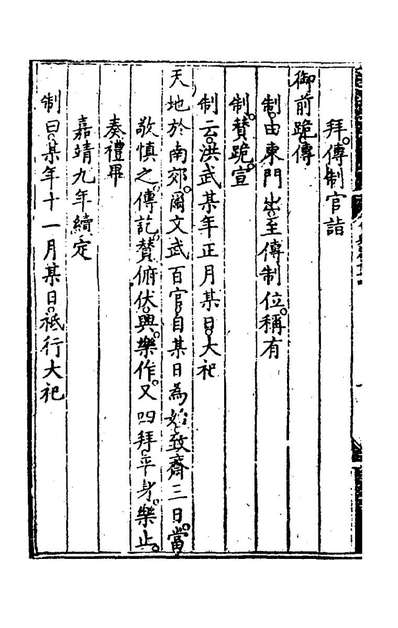 拜。傳制官詣
御前跪。傳
制。由東門出。至傳制位。稱有
制。贊跪。宣
制云。洪武某年正月某日。大祀
天地於南郊。爾文武百官。自某日為始。致齋三日。當
敬慎之。傳訖。贊俯伏。興。樂作。又四拜。平身。樂止。
奏禮畢
嘉靖九年續定
制曰。某年十一月某日。祗行大祀